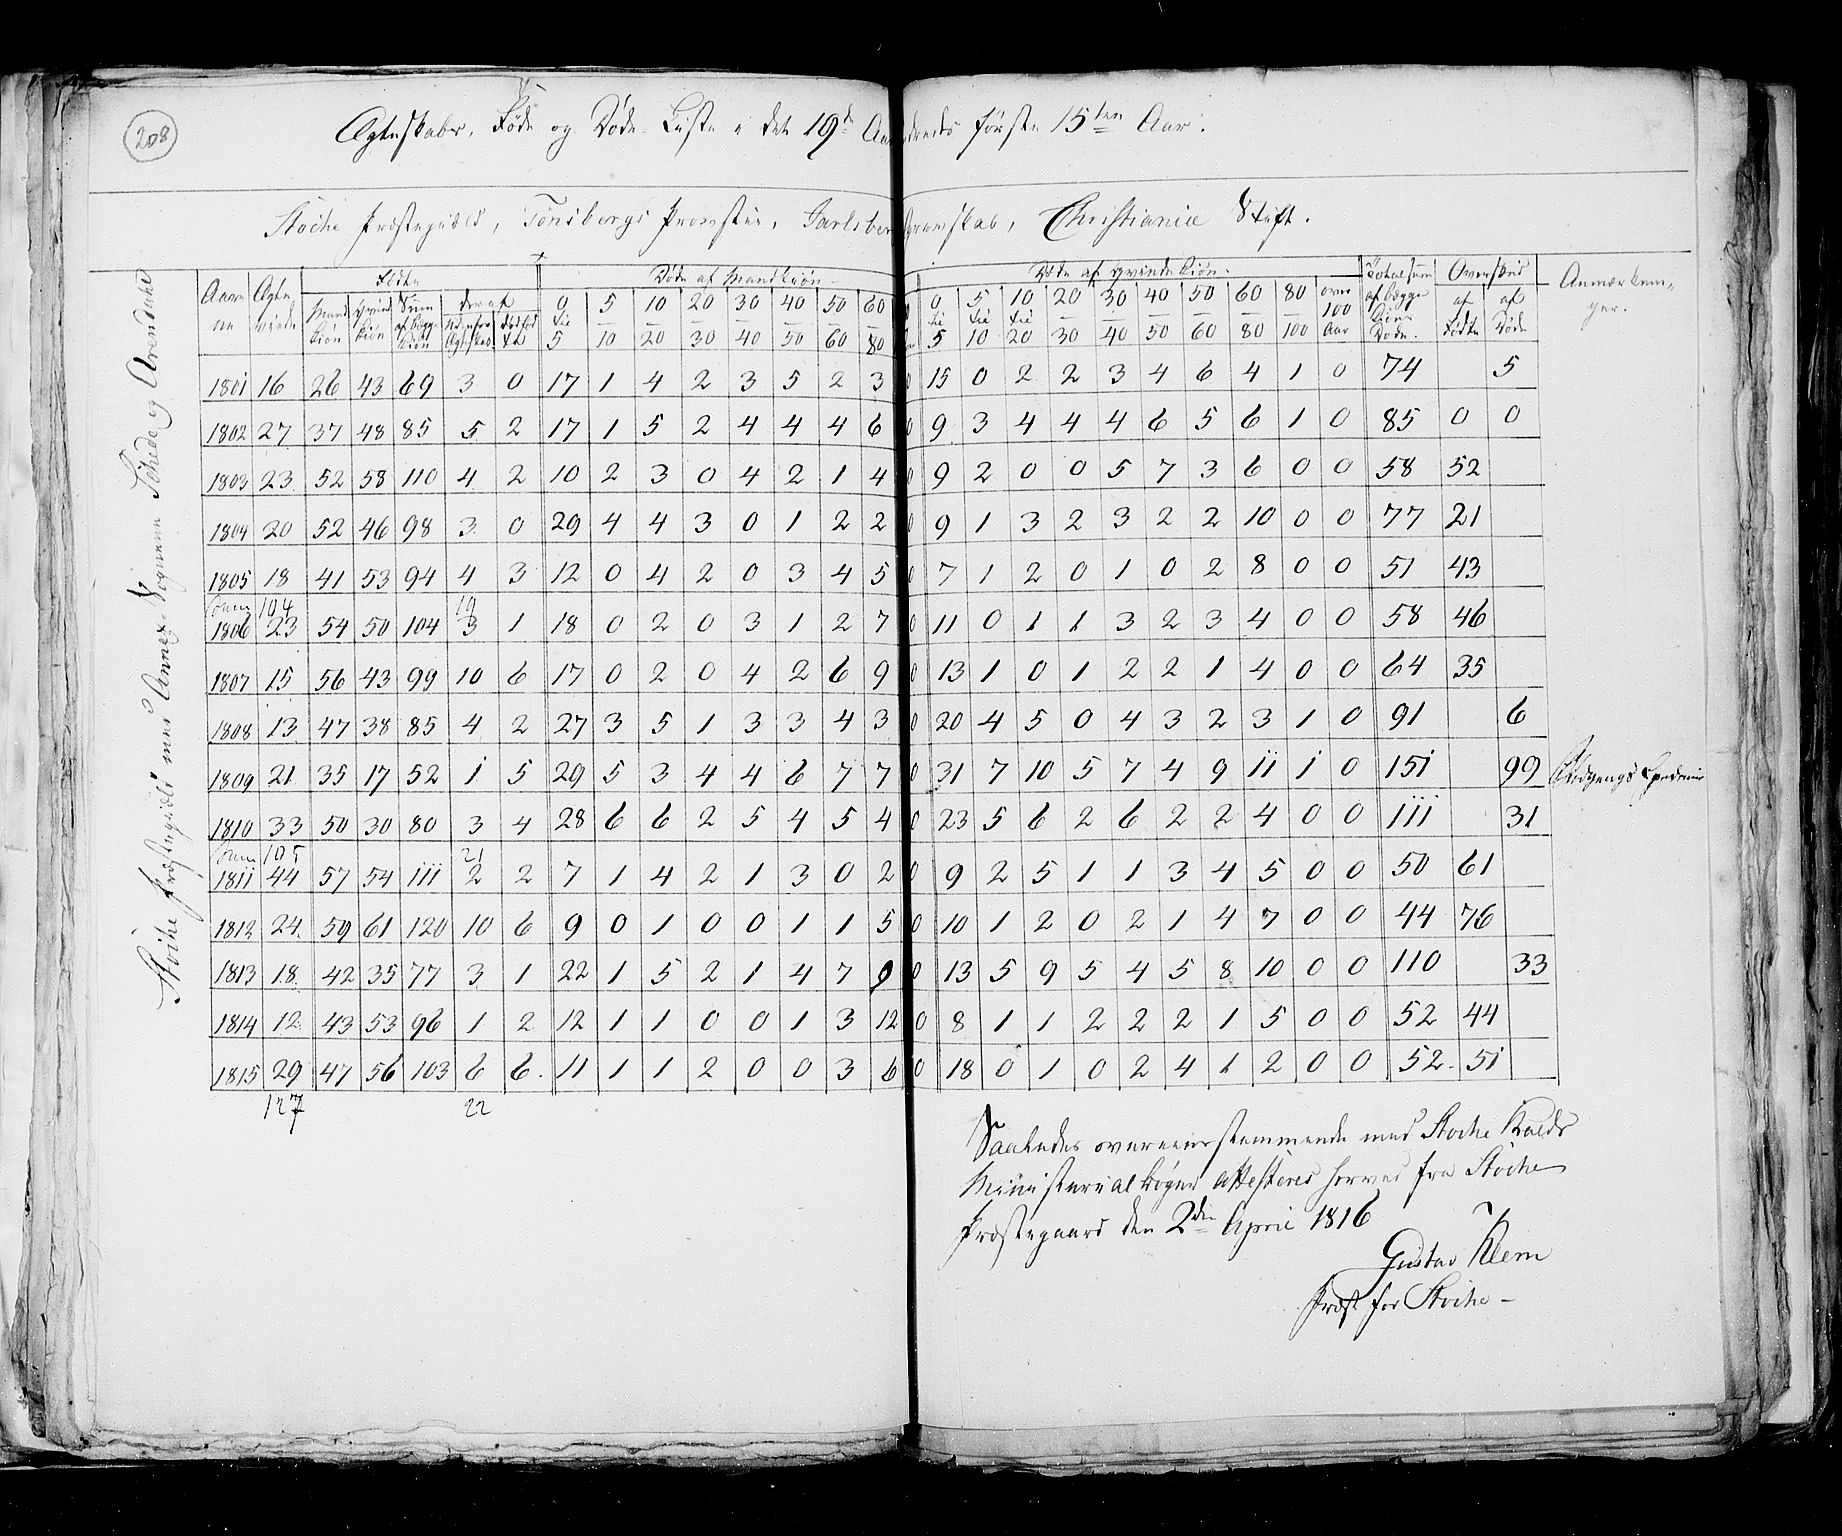 208
Ægteskabs, Føde og Døde Liste i det 19de Aarhundreds første 15ten Aar.
Stocke Præstegield, Tønsbergs Provstie, Jarlsberg Grevskab, Christianiæ Stift.
Stocke Præstegield med Annex Sognene Sæhed og Arendahl
Aarene Ægteviede Fødte Døde af Mandkiøn Døde af Qvindekiøn Totalsum af begge Kiøns Døde. Overskud Anmærkninger.
Mandkiøn Qvindkiøn Sum af begge Kiøn deraf udenfor Ægteskab. Dødfødte 0 til 5 5 – 10 10 – 20 20 – 30 30 – 40 40 – 50 50 – 60 60 – 80 0 til 5 5 til 10 10 til 20 20 – 30 30 – 40 40 – 50 50 – 60 60 – 80 80 – 100 over 100 Aar af Fødte af Døde
1801 16 26 43 69 3 0 17 1 4 2 3 5 2 3 0 15 0 2 2 3 4 6 4 1 0 74 5
1802 27 37 48 85 5 2 17 1 5 2 4 4 4 6 0 9 3 4 4 4 6 5 6 1 0 85 0 0
1803 23 52 58 110 4 2 10 2 3 0 4 2 1 4 0 9 2 0 0 5 7 3 6 0 0 58 52
1804 20 52 46 98 3 0 29 4 4 3 0 1 2 2 0 9 1 3 2 3 2 2 10 0 0 77 21
1805 18 41 53 94 4 3 12 0 4 2 0 3 4 5 0 7 1 2 0 1 0 2 8 0 0 51 43
Sum 104 19
1806 23 54 50 104 3 1 18 0 2 0 3 1 2 7 0 11 0 1 1 3 2 3 4 0 0 58 46
1807 15 56 43 99 10 6 17 0 2 0 4 2 6 9 0 13 1 0 1 2 2 1 4 0 0 64 35
1808 13 47 38 85 4 2 27 3 5 1 3 3 4 3 0 20 4 5 0 4 3 2 3 1 0 91 6
1809 21 35 17 52 1 5 29 5 3 4 4 6 7 7 0 31 7 10 5 7 4 9 11 1 0 151 99 Blodgangs Epedemie
1810 33 50 30 80 3 4 28 6 6 2 5 4 5 4 0 23 5 6 2 6 2 2 4 0 0 111 31
Sum 105 21
1811 44 57 54 111 2 2 7 1 4 2 1 3 0 2 0 9 2 5 1 1 3 4 5 0 0 50 61
1812 24 59 61 120 10 6 9 0 1 0 0 1 1 5 0 10 1 2 0 2 1 4 7 0 0 44 76
1813 18 42 35 77 3 1 22 1 5 2 1 4 7 9 0 13 5 9 5 4 5 8 10 0 0 110 33
1814 12 43 53 96 1 2 12 1 1 0 0 1 3 12 0 8 1 1 2 2 2 1 5 0 0 52 44
1815 29 47 56 103 6 6. 11 1 1 2 0 0 3 6 0 18 0 1 0 2 4 1 2 0 0 52. 51
127 22
Saaledes overeensstemmende med Stocke Kalds
Ministerial bøger attesteres herved fra Stocke
Præstegaard den 2den April 1816
Gustav Klem
Præst for Stocke –